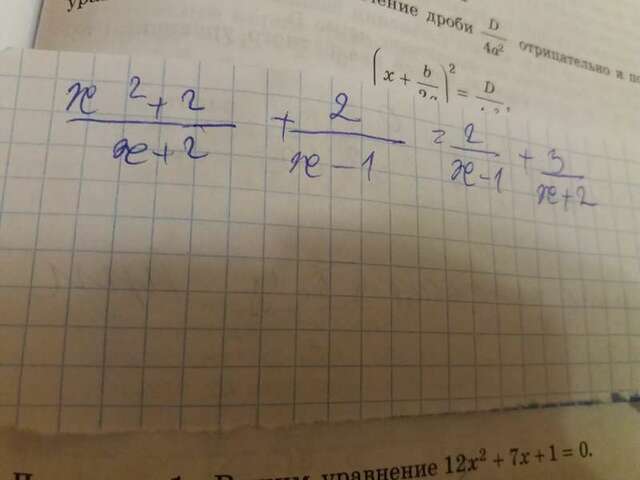 ение дроби D/4a² отрицательно и по
(x + b/2a)² = D/4a²,
(x² + 2)/(x + 2) + 2/(x - 1) = 2/(x - 1) + 3/(x + 2)
уравнение 12x² + 7x + 1 = 0.